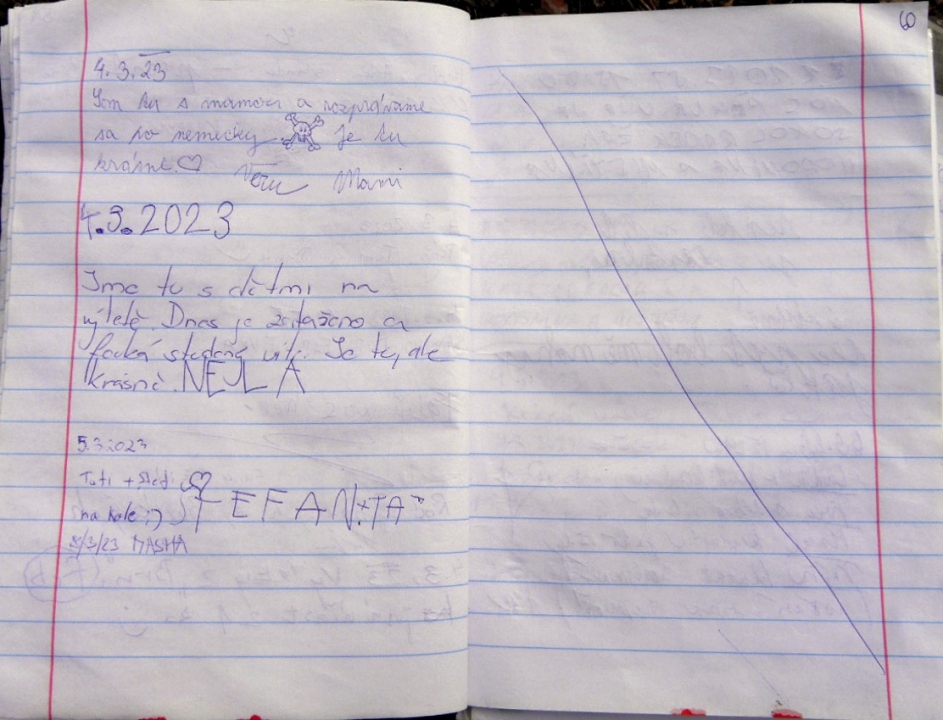 60
4.3.23
Som tu s mamou a rozprávame
sa po nemecky je tu
krásne. ♡
Mami
4.3.2023
Jme tu s dětmi na
výletě. Dnes je zataženo a
fouká studený vítr. Je tu, ale
krásně. NEJLA
5.3.2023
na kole :) ŠTEFAN
8/3/23 MASHA